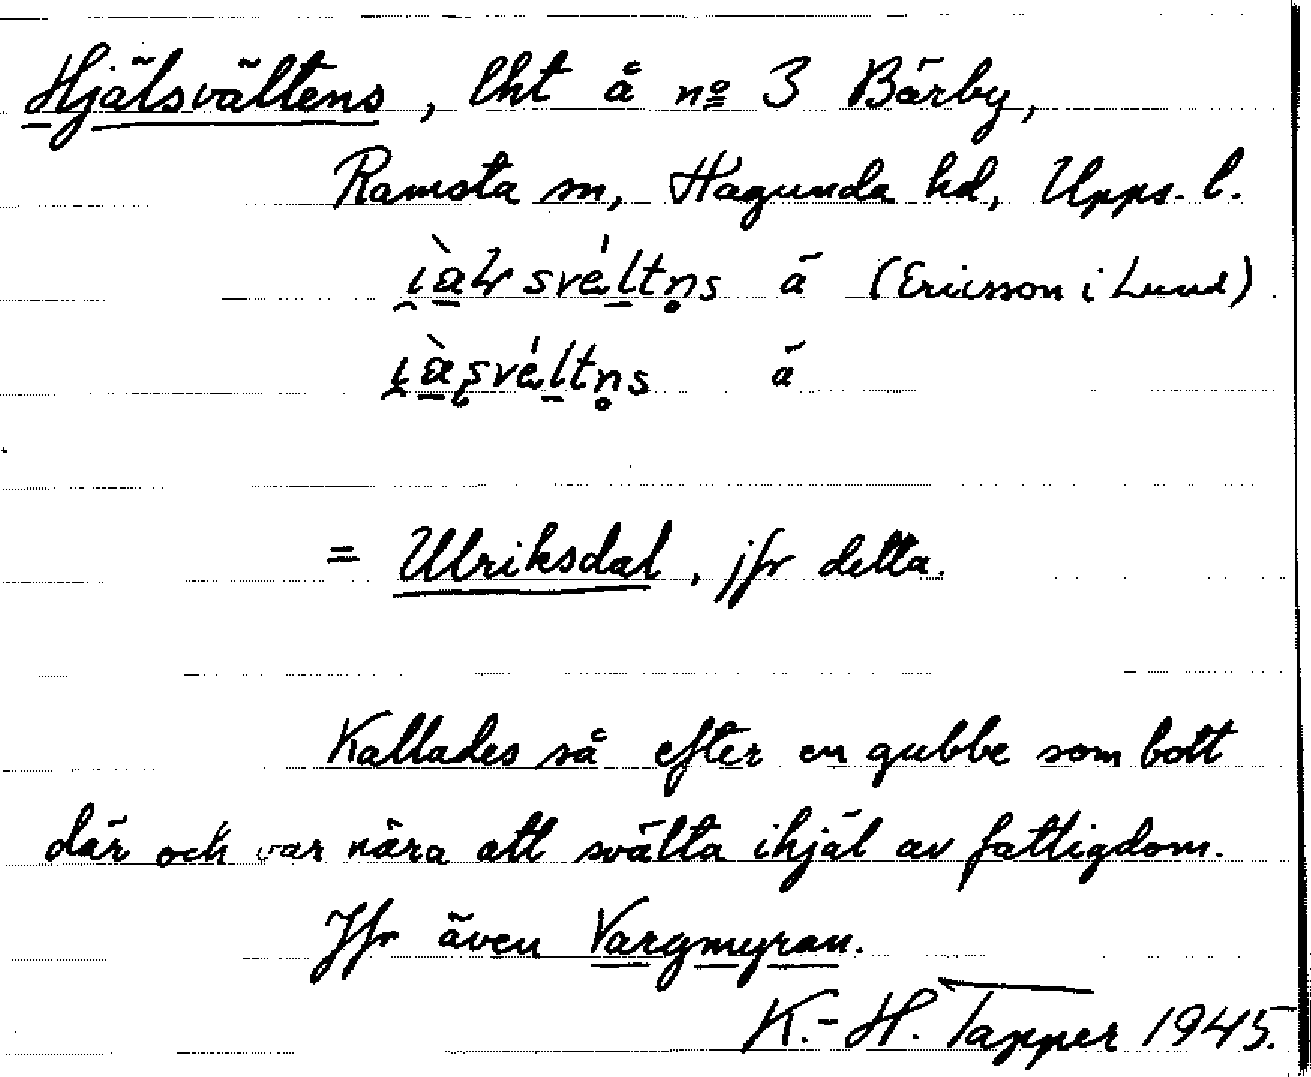 Hjälsvältens, lht å nº 3 Bärby,
Ramsta sn, Hagunda hd, Upps. l.
(Ericsson i Lund)
= Ulriksdal, jfr detta.
Kallades så efter en gubbe som bott
där och var nära att svälta ihjäl av fattigdom.
Jfr även Vargmyran.
K.-H. Tapper 1945.